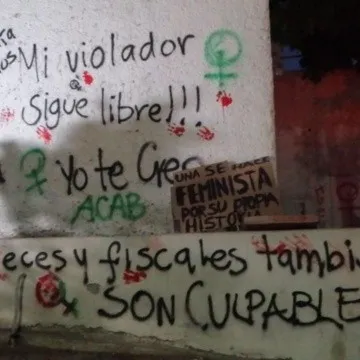 Mi violador
Sigue libre!!!
Yo te Creo
ACAB
UNA SE HACE
FEMINISTA
POR SU PROPIA
HISTORIA
SON CULPABLE